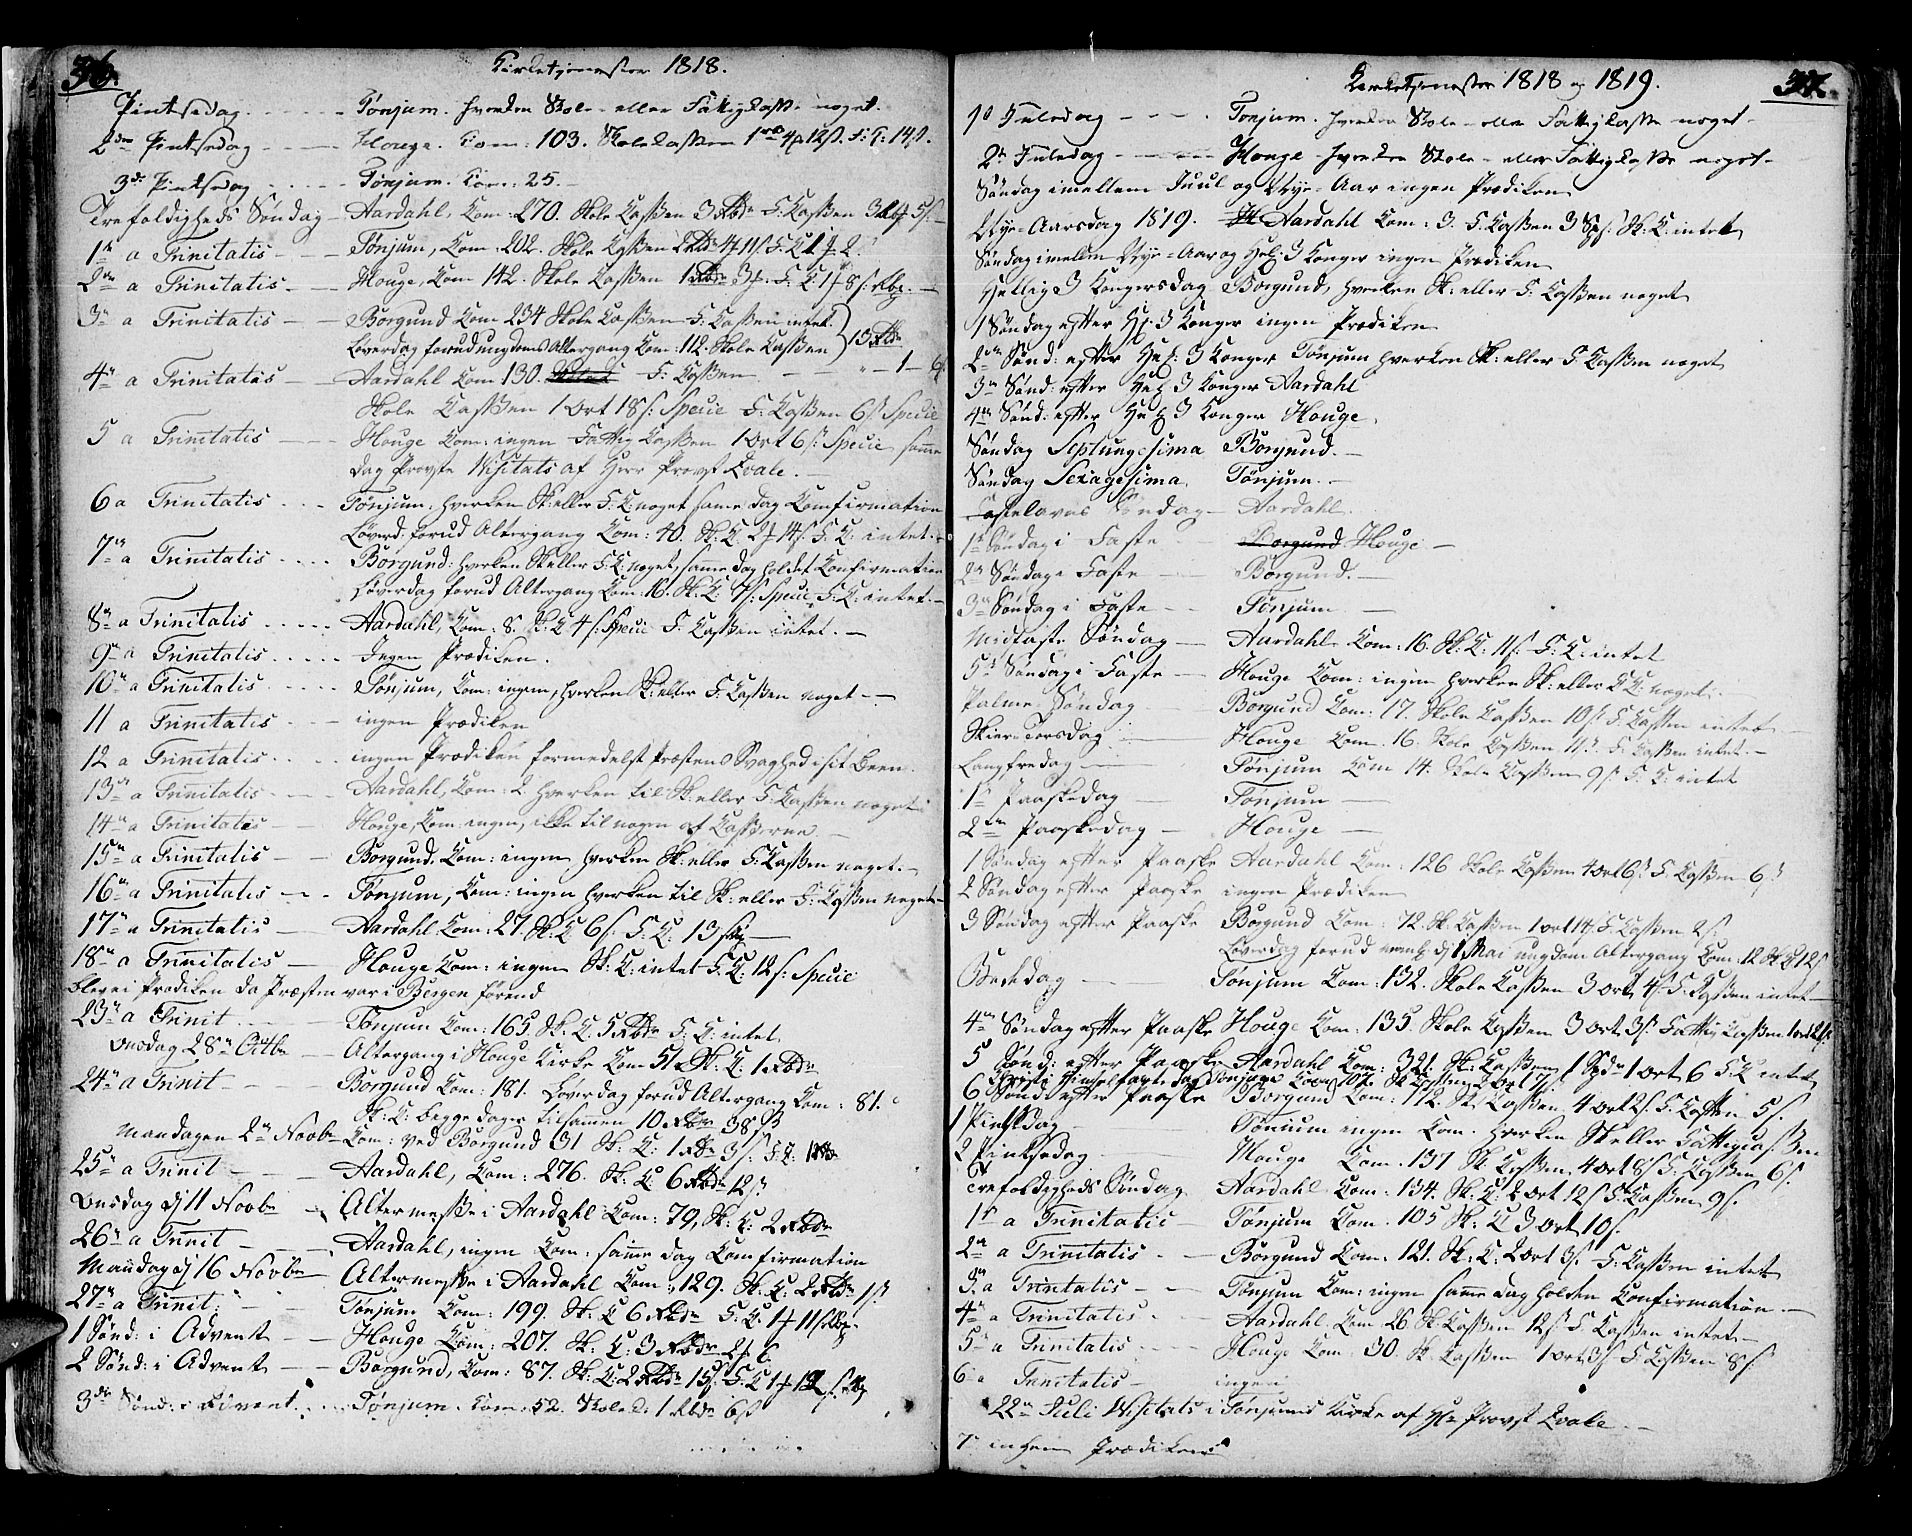 36.
Kirketjenester 1818.
Pintsedag - - - - - Tønjum. hverken Skole- eller Fattigkasse noget.
2den Pintsedag - - - Houge. Com: 103. Skolekassen
3de Pintsedag - - - - Tønjum. Com: 25.
Trefoldigheds Søndag - Aardahl, Com: 270. Skole Cassen 3 Rbdr F. Cassen
1te a Trinitatis - - - Tønjum, Com: 202. Skole Cassen
2den a Trinitatis - - Houge, Com 142. Skole Cassen
3de a Trinitatis - - Borgund Com 234 Skole Cassen F: Cassen intet.
Løverdag forud ungdoms Altergang Com: 112. Skole Cassen 13 Rbdr
4de a Trinitatis - - Aardahl Com 130. F: Cassen
Skole Cassen 1 Ort 18 s: Specie F: Cassen 6 s Specie
5 a Trinitatis - - - Houge Com: ingen Fattig Cassen 1 Ort 6 s: Specie samme
dag Provste Visitats af Herr Provst Qvale.
6 a Trinitatis - - - Tønjum, hverken Sk: eller F: C: noget samme dag Confirmation
Løverd: forud Altergang Com: 40. Sk: C. F: C: intet.
7de a Trinitatis - - - Borgund: hverken Sk eller F: C noget, samme dag holdet Confirmation
Løverdag forud Altergang Com: 16. Sk: C: 4 s: Specie, F: C: intet.
8de a Trinitatis - - - - Aardahl, Com: 8. Sk: C 4 s: Specie F: Cassen intet.
9de a Trinitatis - - - - Ingen Prædiken.
10de a Trinitatis - - - Tønjum, Com: ingen, hverken Sk: eller F: Cassen noget
11 a Trinitatis - - - ingen Prædiken
12 a Trinitatis - - - ingen Prædiken formedelst Præstens Svaghed i sit Been.
13de a Trinitatis - - Aardahl, Com: 2 hverken til Sk: eller F: Cassen noget
14de a Trinitatis - Houge, Com: ingen, ikke til nogen af Casserne.
15de a Trinitatis - - Borgund. Com: ingen hverken Sk: eller F: Cassen noget.
16de a Trinitatis - - - Tønjum, Com: ingen hverken til Sk: eller F: Cassen noget
17de a Trinitatis - - Aardahl Com: 27. Sk: C 6 s. F: C: 13
18de a Trinitatis - - Houge Com: ingen Sk: C: intet F: C: 12 s. Specie
blev ei Prædiken da Præsten var i Bergen
23de a Trinit. - - - Tonjum Com: 165. Sk: C. 5 Rbdr F: C: intet
Onsdag 28de Octbr - Altergang i Houge Kirke Com 51 Sk: C: 1 Rbdr
24de a Trinit - - Borgund Com: 181. Løverdag forud Altergang Com: 81.
Sk: C: begge dager tilsamen 10 Rbdr 38 s
Mandagen 2de Novbr Com: ved Borgund 31 Sk: C: 1 Rbdr 3 s: F C:
25de a Trinit - - Aardahl, Com: 276. Sk: C 6 Rbdr 12 s
Onsdag d 11 Novbr - Altermesse i Aardahl Com: 79, Sk: C: 2 Rbdr
26de a Trinit - - - Aardahl, ingen Com: samme dag Comfirmation
Mandag d 16 Novbr - Altermesse i Aardahl Com: 129. Sk: C: 2 Rbdr 1 s.
27de a Trinit: - - Tonjum Com: 199. Sk: C 6 Rbdr F: C:
1 Sønd: i Advent - - Houge Com: 207. Sk: C: 3 Rbdr
2 Sønd: i Advent - - Borgund, Com: 87. Sk: C: 2 Rbdr
3de Sønd: i Advent. - - Tønjum. Com: 52. Skole C: 1 Rbdr 6 s
37.
Kirketjenester 1818 og 1819.
1ste Juledag - - - Tonjum. hverken Skole- eller Fattigkasse noget.
2de Juledag - - - Houge hverken Skole- eller Fattigkasse noget.
Søndag imellem Juul og Nye-Aar ingen Prædiken
Nye-Aarsdag 1819. Aardahl Com: 3. F: Cassen 3 Sk: C: intet
Søndag imellem Nye-Aar og Hel: 3 Konger ingen Prædiken
Hellig 3 Kongersdag Borgund, hverken Sk: eller F: Cassen noget
1 Søndag efter H: 3 Konger ingen Prædiken
2den Sønd: efter Hel: 3 Konger Tønjum hverken Sk: eller F: Cassen noget
3de Sønd: efter Hel 3 Konger Aardahl
4de Sønd: efter Hel 3 Konger Houge.
Søndag Septuagesima Borgund.
Søndag Sexagesima. Tønjum.
Fastelavns Søndag - Aardahl.
1ste Søndag i Faste - Borgund Houge
2de Søndag i Faste - Borgund.
3de Søndag i Faste - - Tonjum
Midfaste Søndag - Aardahl Com: 16. Sk: C: 11 s: F: C: intet
5te Søndag i Faste - Houge Com: ingen hverken Sk: eller F C: noget.
Palme Søndag Borgund Com: 17. Skole Cassen 10 s F: Cassen intet
Skier-Torsdag - Houge Com. 16. Skole Cassen 11 s F: Cassen intet.
Langfredag - Tønjum Com 14. Skole Cassen 9 s F: C: intet
1ste Paaskedag - Tonjum
2den Paaskedag - Houge
1 Søndag efter Paaske Aardahl Com: 126 Skole Cassen 4 Ort 6 s F: Cassen 6 s
2 Søndag efter Paaske ingen Prædiken
3 Søndag efter Paaske Borgund Com: 72. Sk: Cassen 1 ort 14 s. F: Cassen 2 s:
Løverdag forud d 1 Mai ungdom Altergang Com: 12 Sk C 12 s
Bededag - Tønjum Com: 132. Skole Cassen 3 ort 4 s F: Cassen intet
4de Søndag efter Paaske Houge Com: 135. Skole Cassen 3 ort 3 s: Fattig Cassen
5 Sønd: efter Paaske Aardahl Com: 321. Sk: Cassen 1 Spdr 1 ort 6 F: C intet
Christi Himmelfarts dag Tønjum Com: 107. Sk Cassen 2 Ort 7 s:
6 Sønd efter Paaske Borgund Com: 112. Sk: Cassen 4 ort 2 s. F: Cassen 5 s.
1 Pintsdag - Tonium ingen Com. hverken Sk eller Fattigcassen
2 Pintsedag Houge Com: 137 Sk Cassen 4 ort 8 s F: Cassen 6 s.
Trefoldigheds Søndag Aardahl Com: 134. Sk: C: 2 ort 12 s F: Cassen 9 s.
1ste a Trinitatis Tønjum Com: 105 Sk: C 3 ort 10 s.
2de a Trinitatis. - Borgund Com: 121. Sk: C: 2 ort 3 s. F: Cassen intet
3de a Trinitatis - - Tønjum Com: ingen samme dag holden Confirmation.
4de a Trinitatis - - Aardahl Com 26 Sk: Cassen 12 s F: Cassen intet
5te a Trinitatis - - Houge Com: 30. Sk: Cassen 1 ort 3 s F: Cassen 8 s
6te a Trinitatis - ingen
22de Juli Visitats i Tønjums Kirke af Hr Provst Qvale.
7de ingen Prædiken